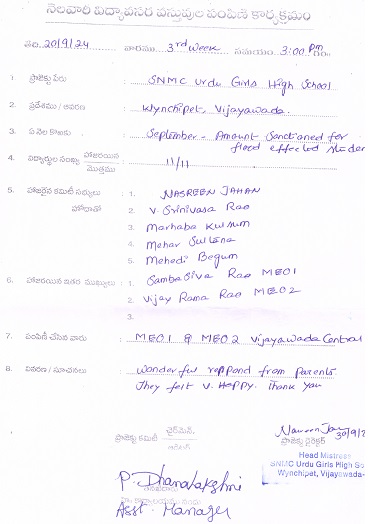 నెలవారీ విద్యావసర వస్తువుల పంపిణీ కార్యక్రమం
తేది. 20/9/24 వారము 3rd week సమయం 3:00 Pm
1. ప్రాజెక్టు పేరు : SNMC Urdu Girls High School
2. ప్రదేశము / ఆవరణ : Wynchipet, Vijayawada.
3. ఏ నెల కొరకు : September - Amount Sanctioned for
flood effected Studen
4. విద్యార్థుల సంఖ్య హాజరయిన / మొత్తము : 11/11
5. హాజరైన కమిటీ సభ్యులు : 1. NASREEN JAHAN
హోదాతో 2. V. Srinivasa Rao
3. Marhaba Kulsum
4. Mehar Sultana
5. Mehedi Begum
6. హాజరయిన ఇతర ముఖ్యులు : 1. Sambasiva Rao MEO1
2. Vijay Rama Rao MEO2
3.
7. పంపిణీ చేసిన వారు : MEO1 & MEO2 Vijayawada Central
8. వివరణ / సూచనలు : Wonderful reppond from Parents
They felt V. Happy. Thank you
ప్రాజెక్టు కమిటీ చైర్మెన్,
ప్రాజెక్టు డైరెక్టర్
Head Mistress
SNMC Urdu Girls High Sc
Wynchipet, Vijayawada-
P. Dhanalakshmi
Asst. Manager